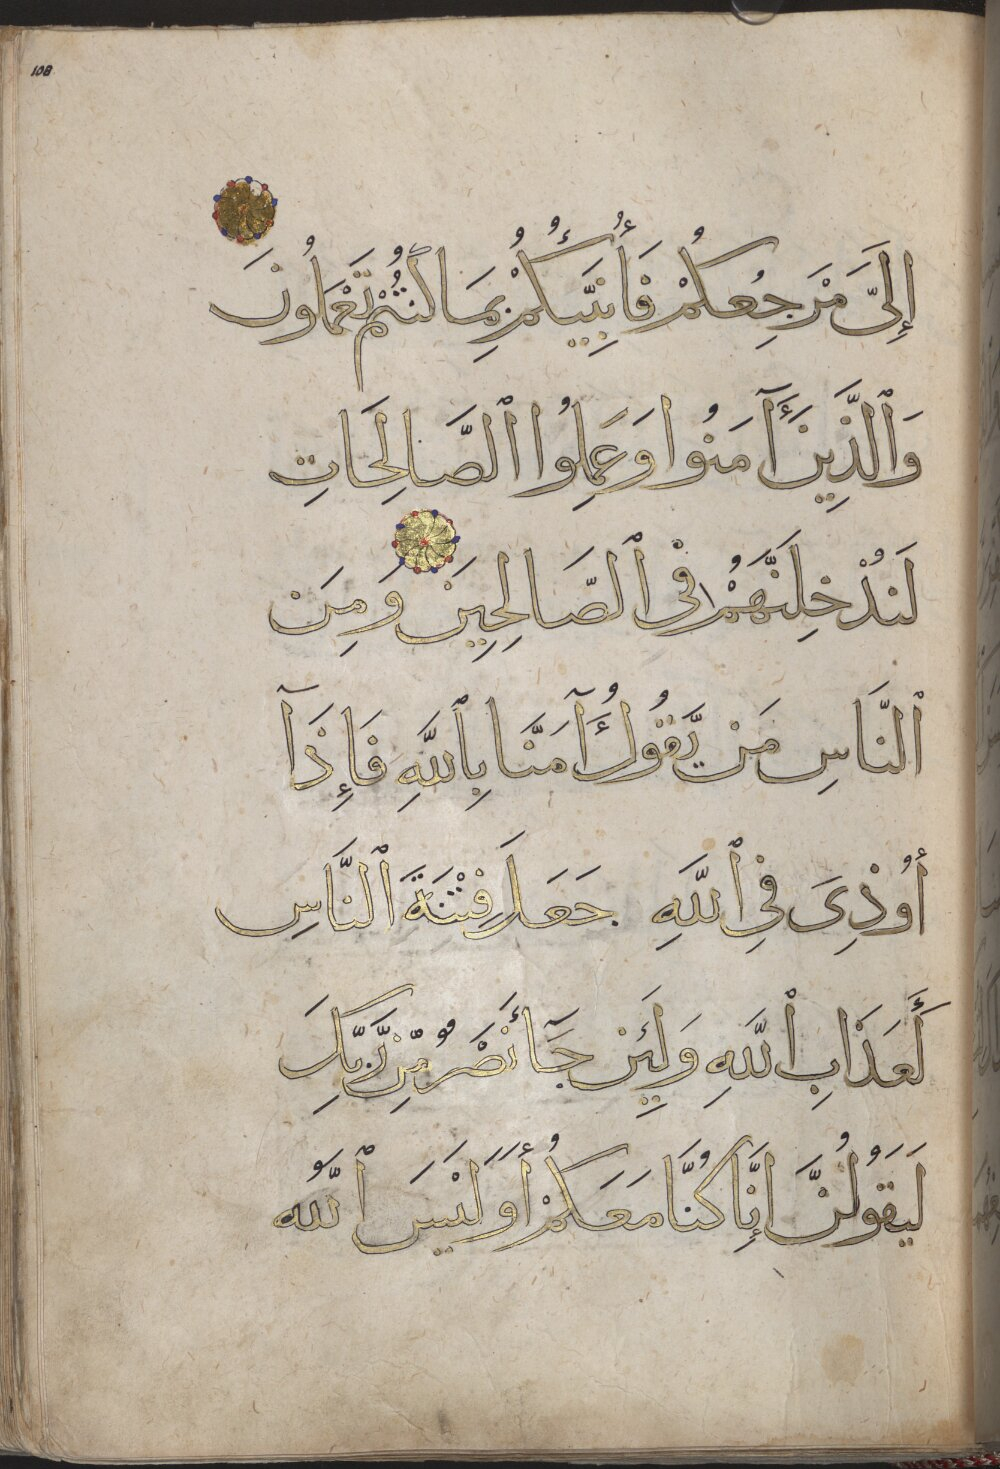 108
إِلَىَّ مَرْجِعُكُمْ فَأُنَبِّئُكُمْ بِمَا كُنتُمْ تَعْمَلُونَ
وَٱلَّذِينَ ءَآمَنُوا وَعَمِلُوا ٱلصَّالِحَاتِ
لَنُدْخِلَنَّهُمْ فِى ٱلصَّالِحِينَ وَمِنَ
ٱلنَّاسِ مَن يَّقُولُ ءَآمَنَّا بِٱللَّهِ فَإِذَآ
أُوذِىَ فِى ٱللَّهِ جَعَلَ فِتْنَةَ ٱلنَّاسِ
كَعَذَابِ ٱللَّهِ وَلَئِن جَآءَ نَصْرٌ مِّن رَّبِّكَ
لَيَقُولُنَّ إِنَّا كُنَّا مَعَكُمْ أَوَلَيْسَ ٱللَّهُ